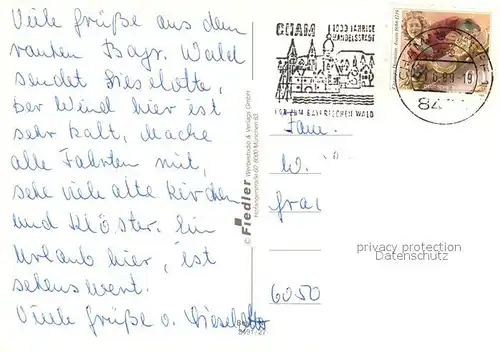 Viele Grüße aus dem
rauhen Bayr. Wald
sendet Lieselotte,
Der Wind hier ist
sehr kalt, mache
alle Fahrten mit,
sehe viele alte Kirchen
und Klöster. Ein
Urlaub hier, ist
sehenswert.
Viele Grüße v. Lieselotte
CHAM
1000 JÄHRIGE
HANDELSSTADT
TOR ZUM BAYERISCHEN WALD
Fam.
W.
6050
© Fiedler Werbestudio & Verlags GmbH
privacy protection
Datenschutz